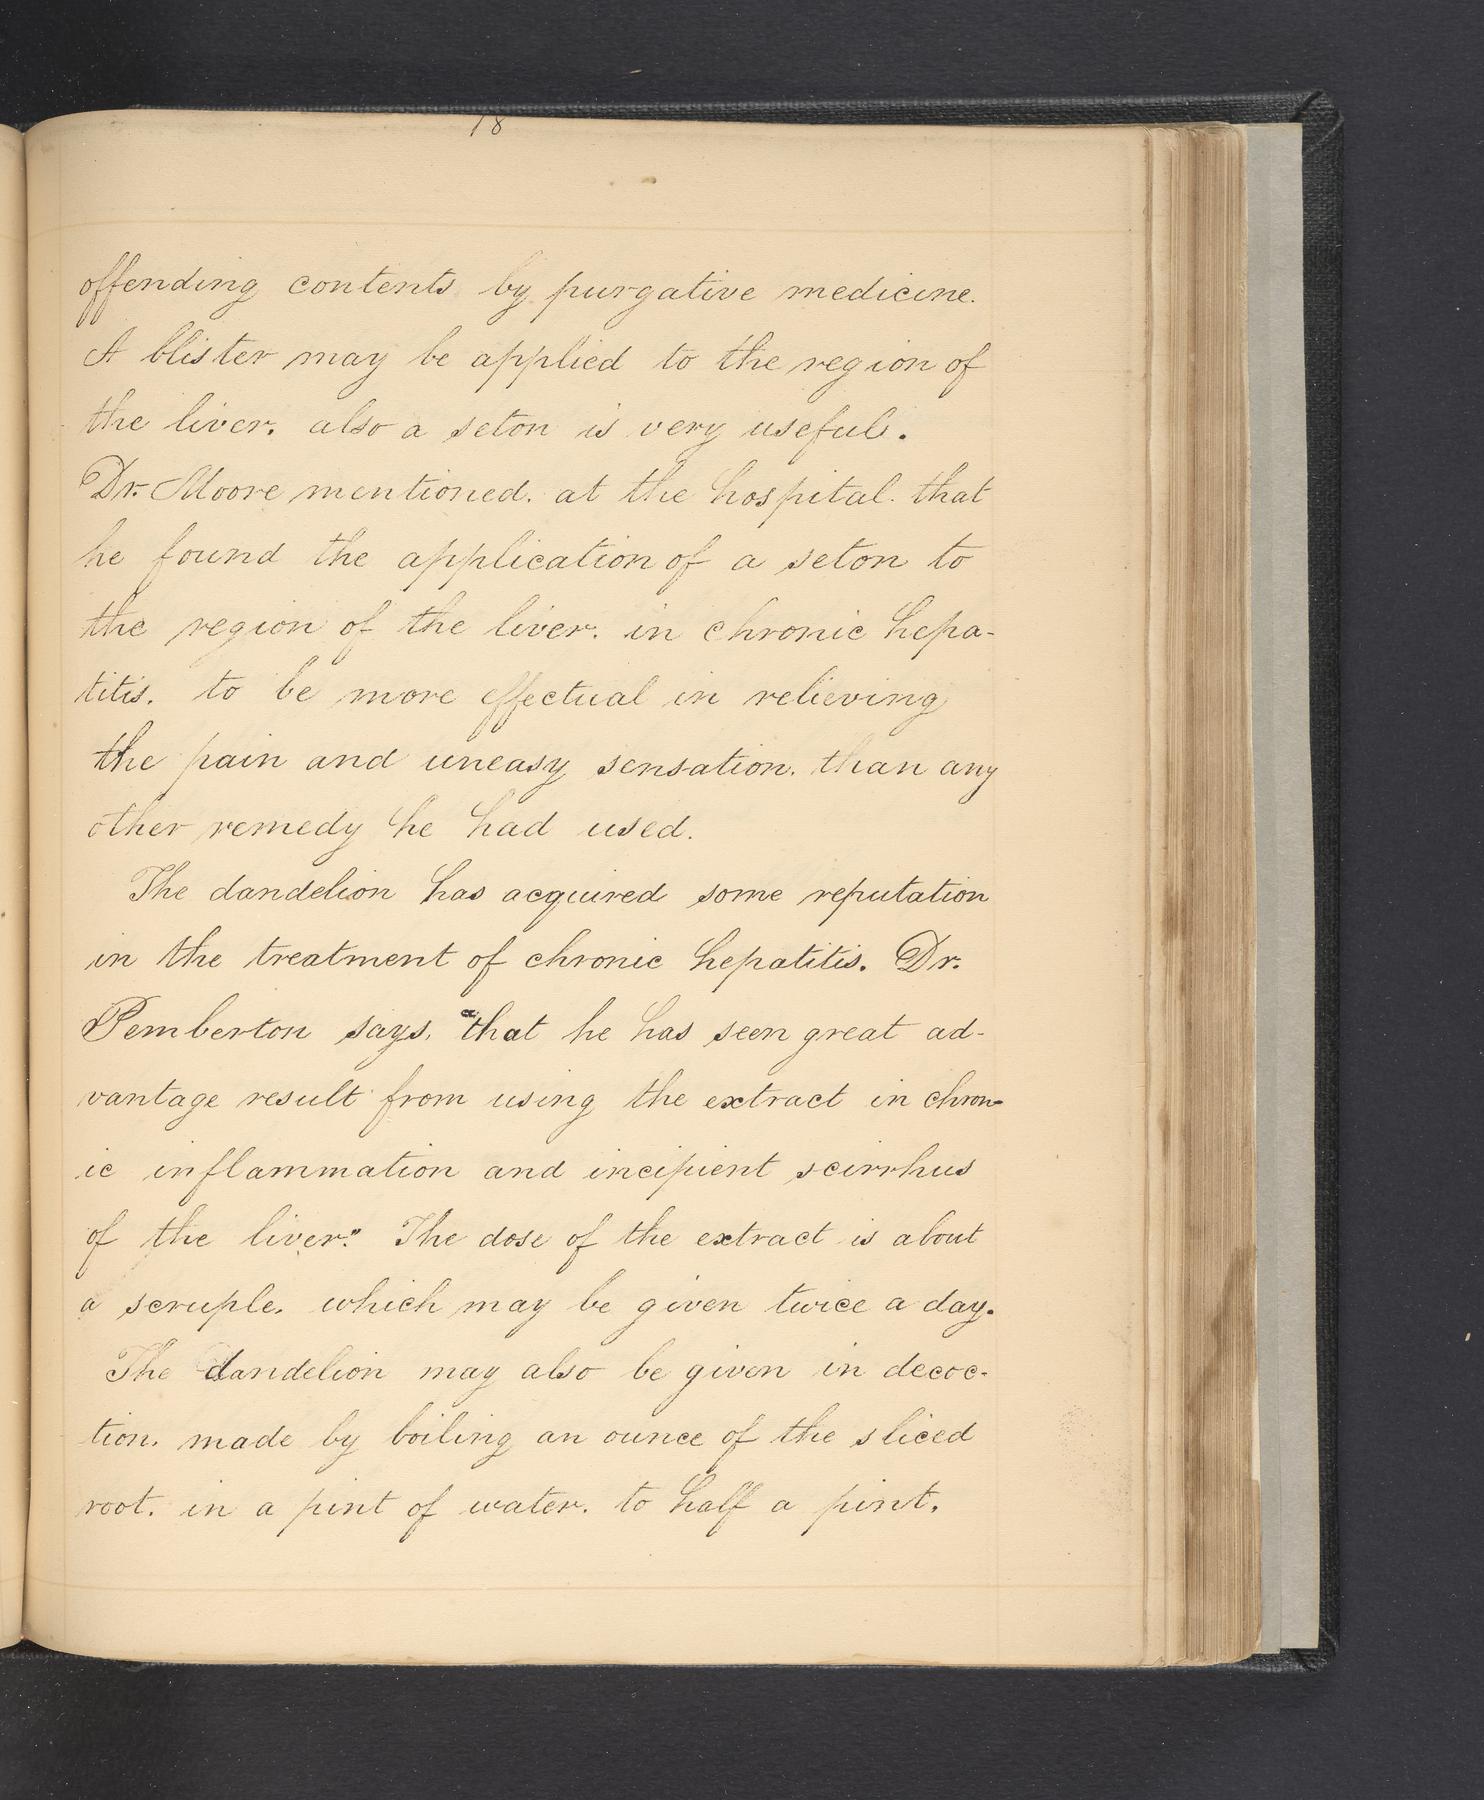 18
offending contents by purgative medicine.
A blister may be applied to the region of
the liver. also a seton is very useful.
Dr. Moore mentioned. at the hospital. that
he found the application of a seton to
the region of the liver. in chronic hepa-
titis. to be more effectual in relieving
the pain and uneasy sensation. than any
other remedy he had used.
The dandelion has acquired some reputation
in the treatment of chronic hepatitis. Dr.
Pemberton says, "that he has seen great ad-
vantage result from using the extract in chron-
ic inflammation and incipient scirrhus
of the liver." The dose of the extract is about
a scruple. which may be given twice a day.
The dandelion may also be given in decoc-
tion. made by boiling an ounce of the sliced
root. in a pint of water. to half a pint.